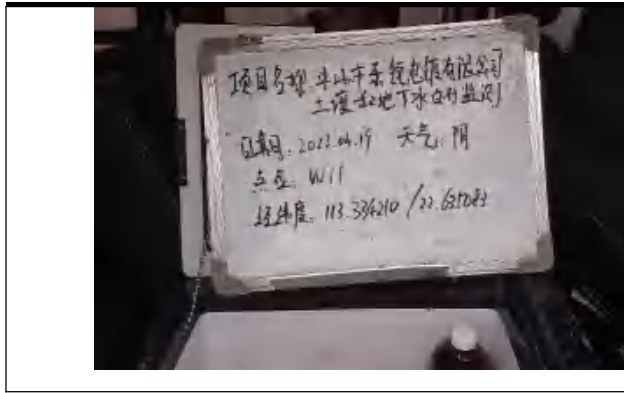 项目名称:中山市系统电镀有限公司
土壤和地下水自行监测
日期:2022.04.19 天气:阴
点位:W11
经纬度:113.334210/22.625083